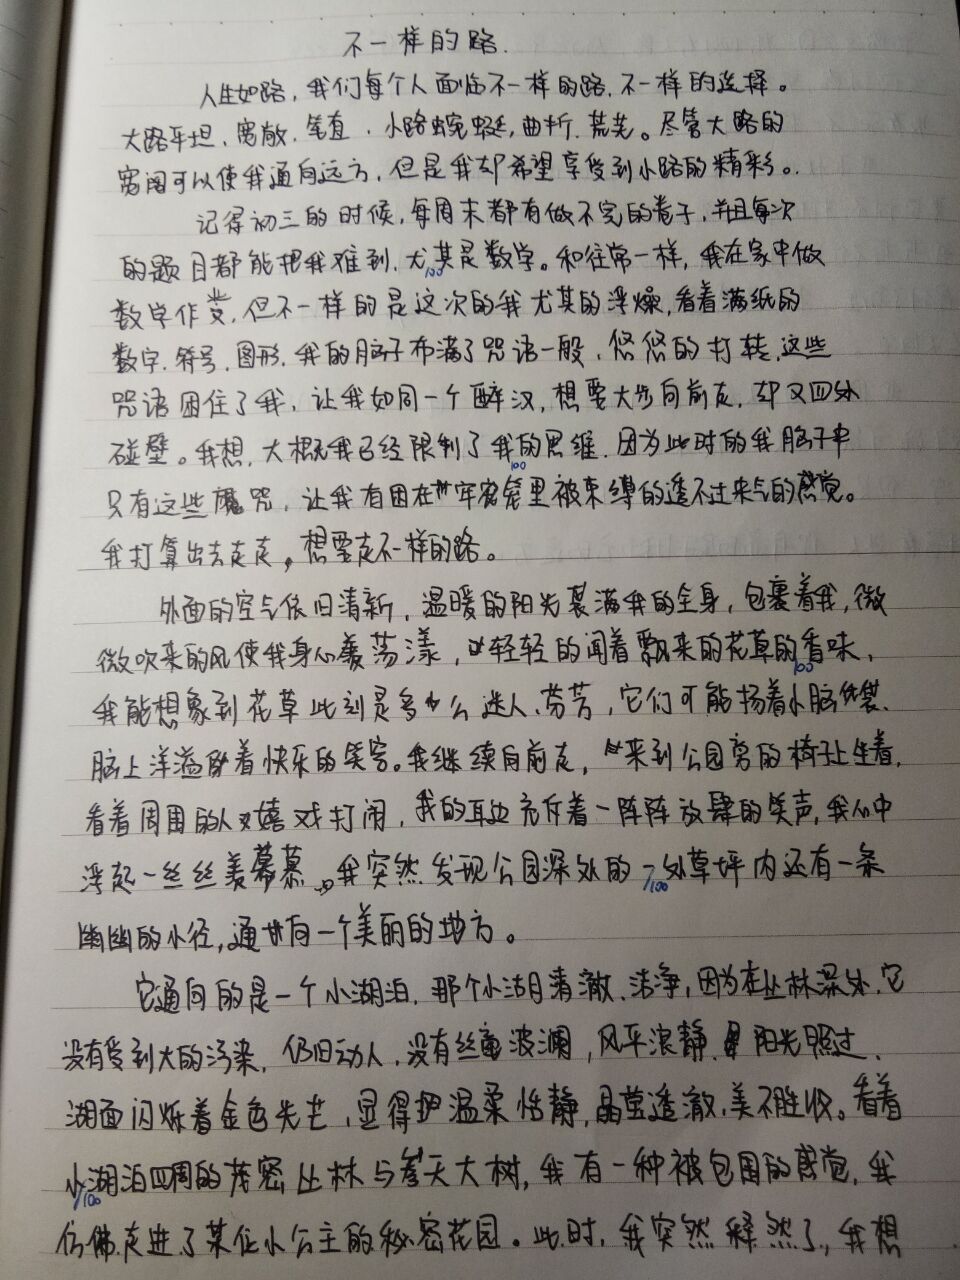 不一样的路.
人生如路，我们每个人面临不一样的路，不一样的选择。
大路平坦、宽敞、笔直，小路蜿蜒，曲折、荒芜。尽管大路的
宽阔可以使我通向远方，但是我却希望享受到小路的精彩。
记得初三的时候，每周末都有做不完的卷子，并且每次
的题目都能把我难到，尤其是数学。和往常一样，我在家中做
100
数学作业，但不一样的是这次的我尤其的浮燥，看着满纸的
数字、符号、图形，我的脑子布满了咒语一般，悠悠的打转，这些
咒语困住了我，让我如同一个醉汉，想要大步向前走，却又四处
碰壁。我想，大概我已经限制了我的思维，因为此时的我脑子中
100
只有这些魔咒，让我有困在牢密笼里被束缚的透不过来气的感觉。
我打算出去走走，想要走不一样的路。
外面的空气依旧清新，温暖的阳光裹满我的全身，包裹着我，微
微吹来的风使我身心荡漾，轻轻的闻着飘来的花草的香味，
100
我能想象到花草此刻是多么迷人、芬芳，它们可能扬着小脑袋，
脸上洋溢着快乐的笑容。我继续向前走，来到公园旁的椅子上坐着，
看着周围的人嬉戏打闹，我的耳边充斥着一阵阵放肆的笑声，我心中
浮起一丝丝羡慕。我突然发现公园深处的一处草坪内还有一条
100
幽幽的小径，通向一个美丽的地方。
它通向的是一个小湖泊，那个小湖泊清澈、洁净，因为在丛林深处，它
没有受到大的污染，仍旧动人，没有丝毫波澜，风平浪静，阳光照过，
湖面闪烁着金色光芒，显得温柔恬静，晶莹透澈，美不胜收。看着
小湖泊四周的茂密丛林与参天大树，我有一种被包围的感觉，我
100
仿佛走进了某位小公主的秘密花园。此时，我突然释然了，我想